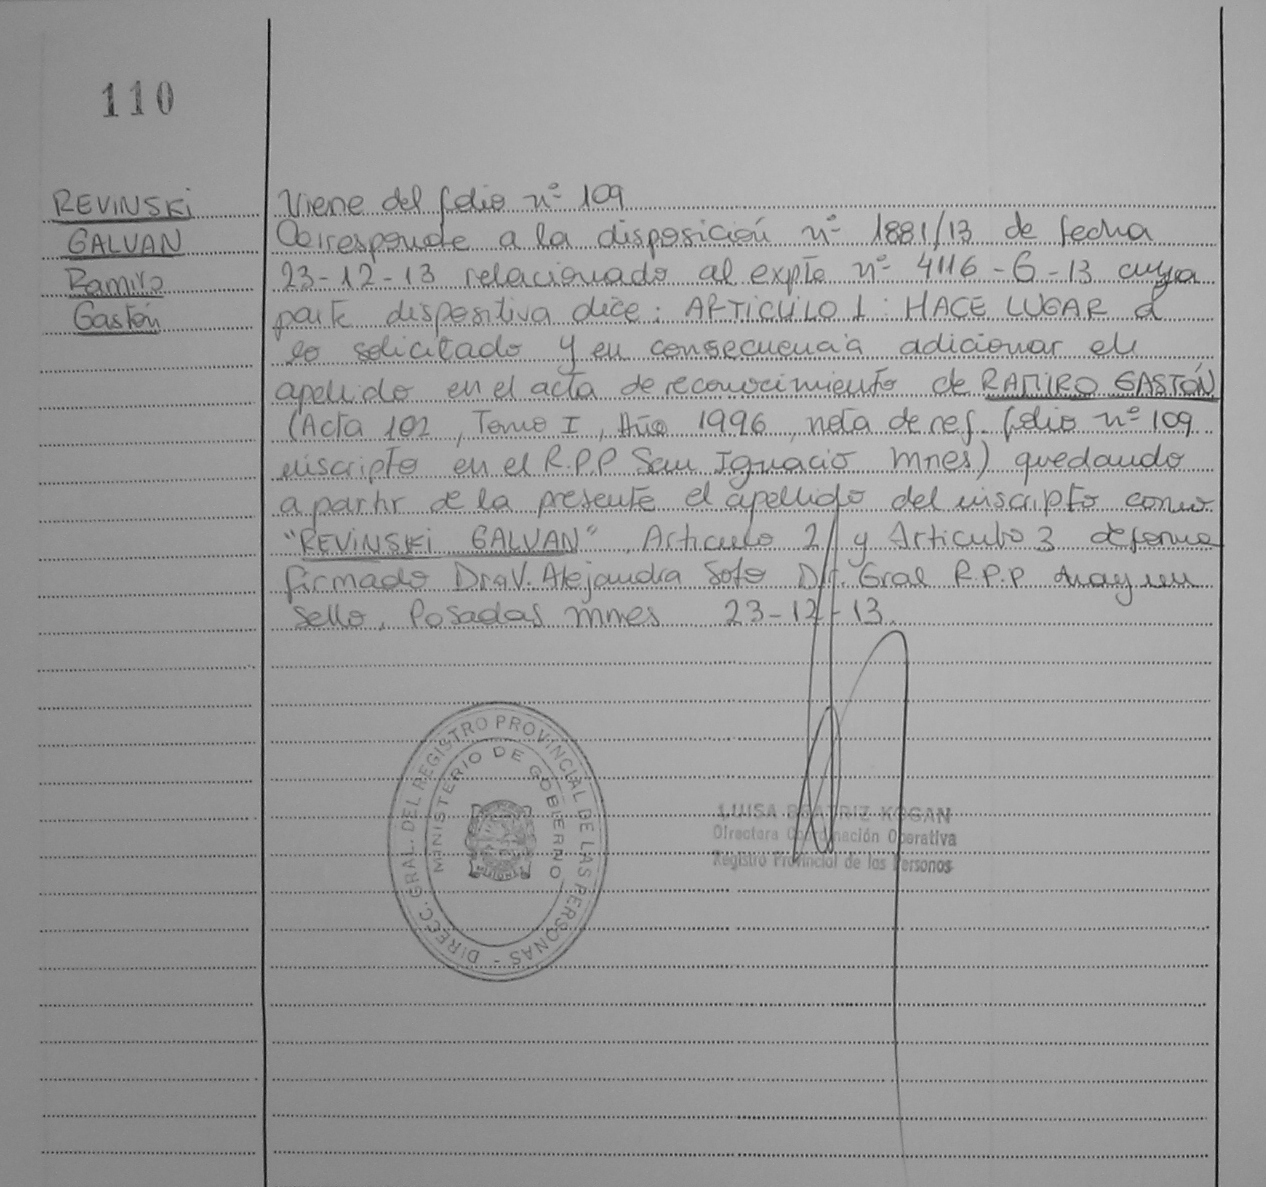 110
REVINSKI
GALVAN
Ramiro
Gastón
Viene del folio nº 109
Corresponde a la disposición nº 1881/13 de fecha
23-12-13 relacionado al expte nº 4116-G-13 cuya
parte dispositiva dice: ARTICULO 1: HACE LUGAR a
lo solicitado y en consecuencia adicionar el
apellido en el acta de reconocimiento de RAMIRO GASTÓN
(Acta 102, Tomo I, Año 1996, nota de ref. folio nº 109
inscripto en el R.P.P San Ignacio Mnes) quedando
a partir de la presente el apellido del inscripto como
"REVINSKI GALVAN". Articulo 2 y Articulo 3 de forma
firmado Dra V. Alejandra Soto Dir. Gral R.P.P hay un
sello. Posadas Mnes 23-12-13.
DIRECC. GRAL. DEL REGISTRO PROVINCIAL DE LAS PERSONAS -
MINISTERIO DE GOBIERNO
LUISA BEATRIZ KOGAN
Directora Coordinación Operativa
Registro Provincial de las Personas